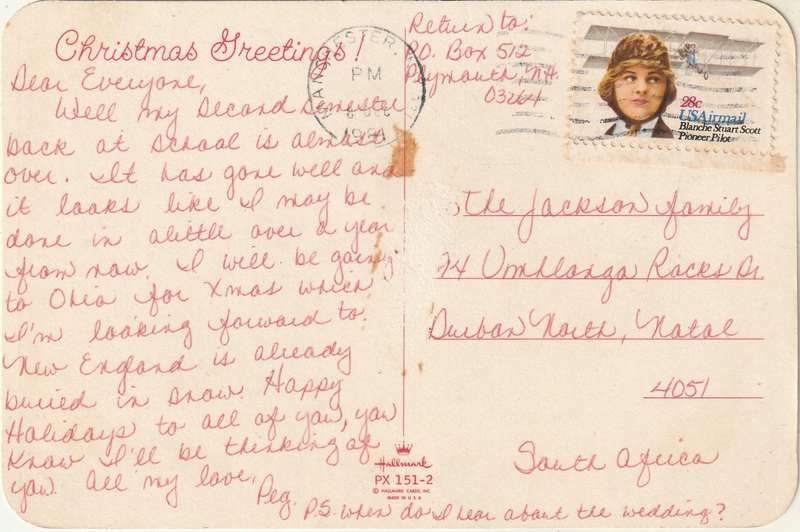 Christmas Greetings!
Dear Everyone,
Well my second semester
back at school is almost
over. It has gone well and
it looks like I may be
done in alittle over a year
from now. I will be going
to Ohio for Xmas which
I'm looking forward to.
New England is already
buried in snow. Happy
Holidays to all of you, you
know I'll be thinking of
you. All my love,
Peg.
P.S. when do I hear about the wedding?
Return to:
P.O. Box 512
Plymouth, N.H.
03264
MANCHESTER
PM
1981
28c
USAirmail
Blanche Stuart Scott
Pioneer Pilot
The Jackson family
74 Umhlanga Rocks Dr.
Durban North, Natal
4051
South Africa
Hallmark
PX 151-2
© HALLMARK CARDS, INC.
MADE IN U.S.A.